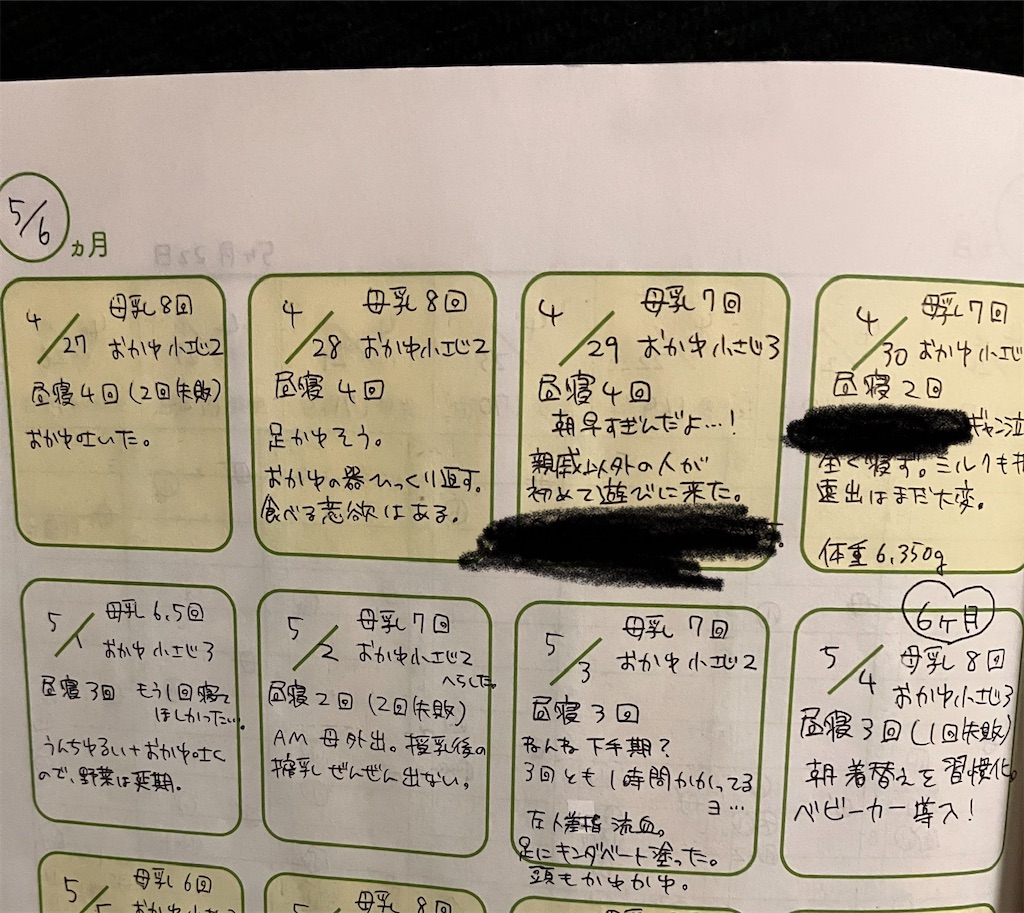 5/6
ヵ月
4/27 母乳8回
おかゆ小さじ2
昼寝4回(2回失敗)
おかゆ吐いた。
4/28 母乳8回
おかゆ小さじ2
昼寝4回
足かゆそう。
おかゆの器ひっくり返す。
食べる意欲はある。
4/29 母乳7回
おかゆ小さじ3
昼寝4回
朝早すぎんだよ…!
親戚以外の人が
初めて遊びに来た。
4/30 母乳7回
おかゆ小さじ
昼寝2回
ギャン泣
全く寝ず。ミルクも
遠出はまだ大変。
体重6,350g
5/1 母乳6,5回
おかゆ小さじ3
昼寝3回 もう1回寝て
ほしかった…。
うんちゆるい+おかゆ吐く
ので、野菜は延期。
5/2 母乳7回
おかゆ小さじ2
へらした。
昼寝2回(2回失敗)
AM 母外出。授乳後の
搾乳ぜんぜん出ない。
5/3 母乳7回
おかゆ小さじ2
昼寝3回
ねんね下手期?
3回とも1時間かかってる
ヨ…
左人差指 流血。
足にキンダベート塗った。
頭もかゆかゆ。
6ヶ月
5/4 母乳8回
おかゆ小さじ3
昼寝3回(1回失敗)
朝着替えを習慣化。
ベビーカー導入!
5/5 母乳6回
おかゆ小さじ
母乳8回